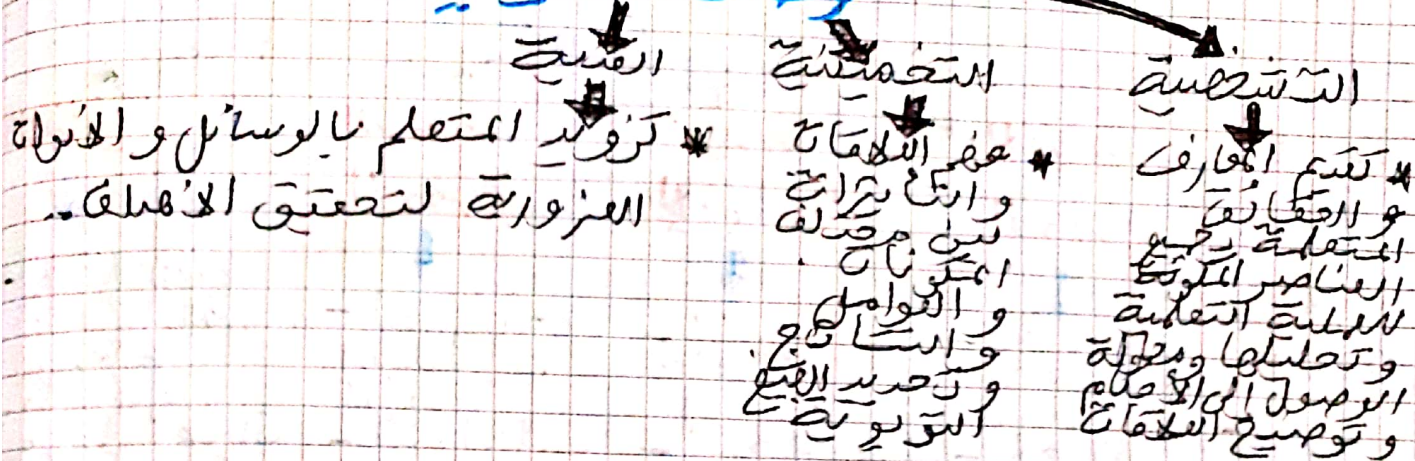 التشخصية
* تقديم المعارف
و الحقائق
المتعلمة بجميع
العناصر المكونة
للعملية التعلمية
و تحليلها ومحولة
الوصول إلى الأحكام
و توضيح العلاقات
التخمينية
* العلاقات
و التأثيرات
بين مختلف
المكونات
و العوامل
و النتائج.
و تحديد القيم
التربوية
الفنية
* كزويد المتعلم بالوسائل و الأدوات
الضرورية لتحقيق الأهداف..